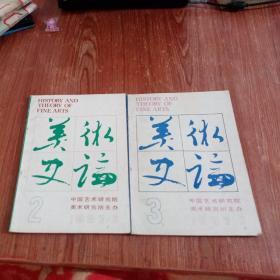 HISTORY AND
THEORY OF
FINE ARTS
美術
史論
2
中国艺术研究院
美术研究所主办
HISTORY AND
THEORY OF
FINE ARTS
美術
史論
3
中国艺术研究院
美术研究所主办